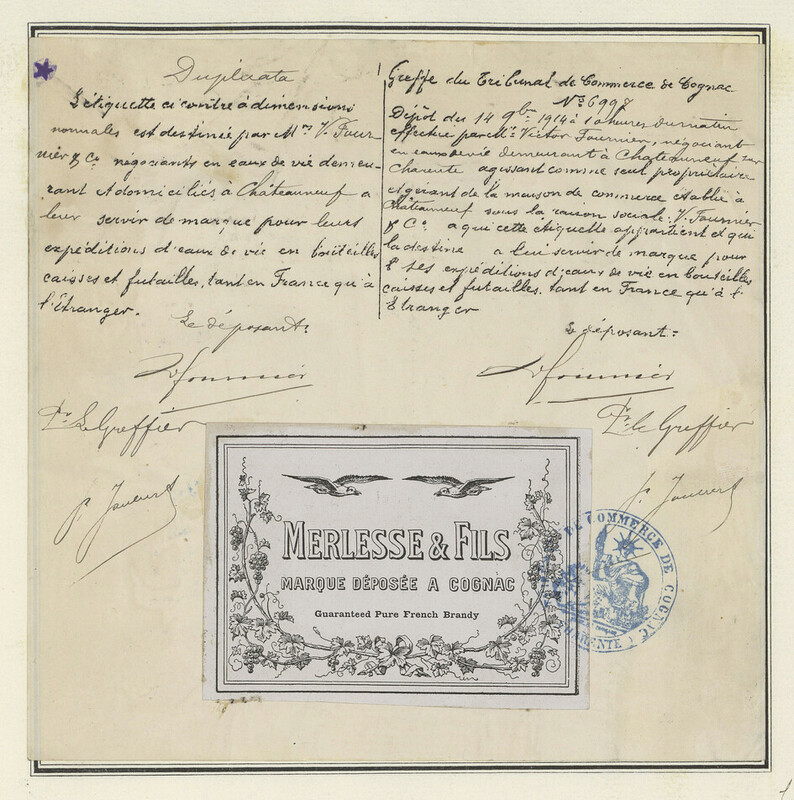 Duplicata
L'étiquette ci contre à dimensions
normales est destinée par Mrs V. Four-
nier & Co négociants en eaux de vie demeu-
rant et domiciliés à Châteauneuf a
leur servir de marque pour leurs
expéditions d'eaux de vie en bouteilles
caisses et futailles, tant en France qu'à
l'Etranger.
Le déposant:
VFournier
Pr Le Greffier
Greffe du Tribunal de Commerce de Cognac
No 6997
Dépôt du 14 9bre 1914 à 10 heures du matin
effectué par Mr Victor Fournier, négociant
en eaux de vie demeurant à Chateauneuf sur
Charente agissant comme seul propriétaire
et gérant de la maison de commerce établie à
Châteauneuf sous la raison sociale: V. Fournier
& Co a qui cette étiquette appartient et qui
la destine a lui servir de marque pour
ses expéditions d'eaux de vie en bouteilles
caisses et futailles, tant en France qu'à l'
Etranger
Le déposant:
VFournier
Pr le Greffier
MERLESSE & FILS
MARQUE DÉPOSÉE A COGNAC
Guaranteed Pure French Brandy
DE COMMERCE DE COGNAC
CHARENTE